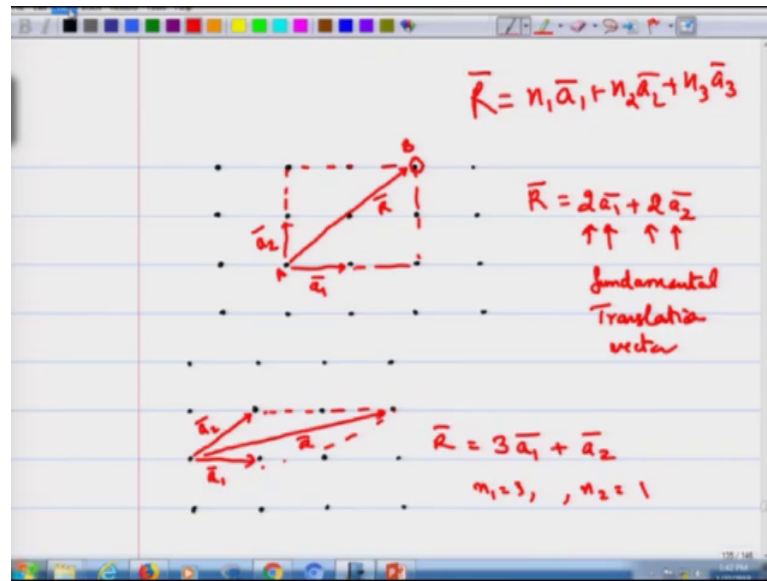 R̅ = n₁a̅₁ + n₂a̅₂ + n₃a̅₃
B
R̅
a̅₂
A
a̅₁
R̅ = 2a̅₁ + 2a̅₂
↑↑ ↑↑
fundamental
Translation
vector
a̅₂
R̅
a̅₁
R̅ = 3a̅₁ + a̅₂
n₁=3, , n₂ = 1
135 / 146
5:42 PM